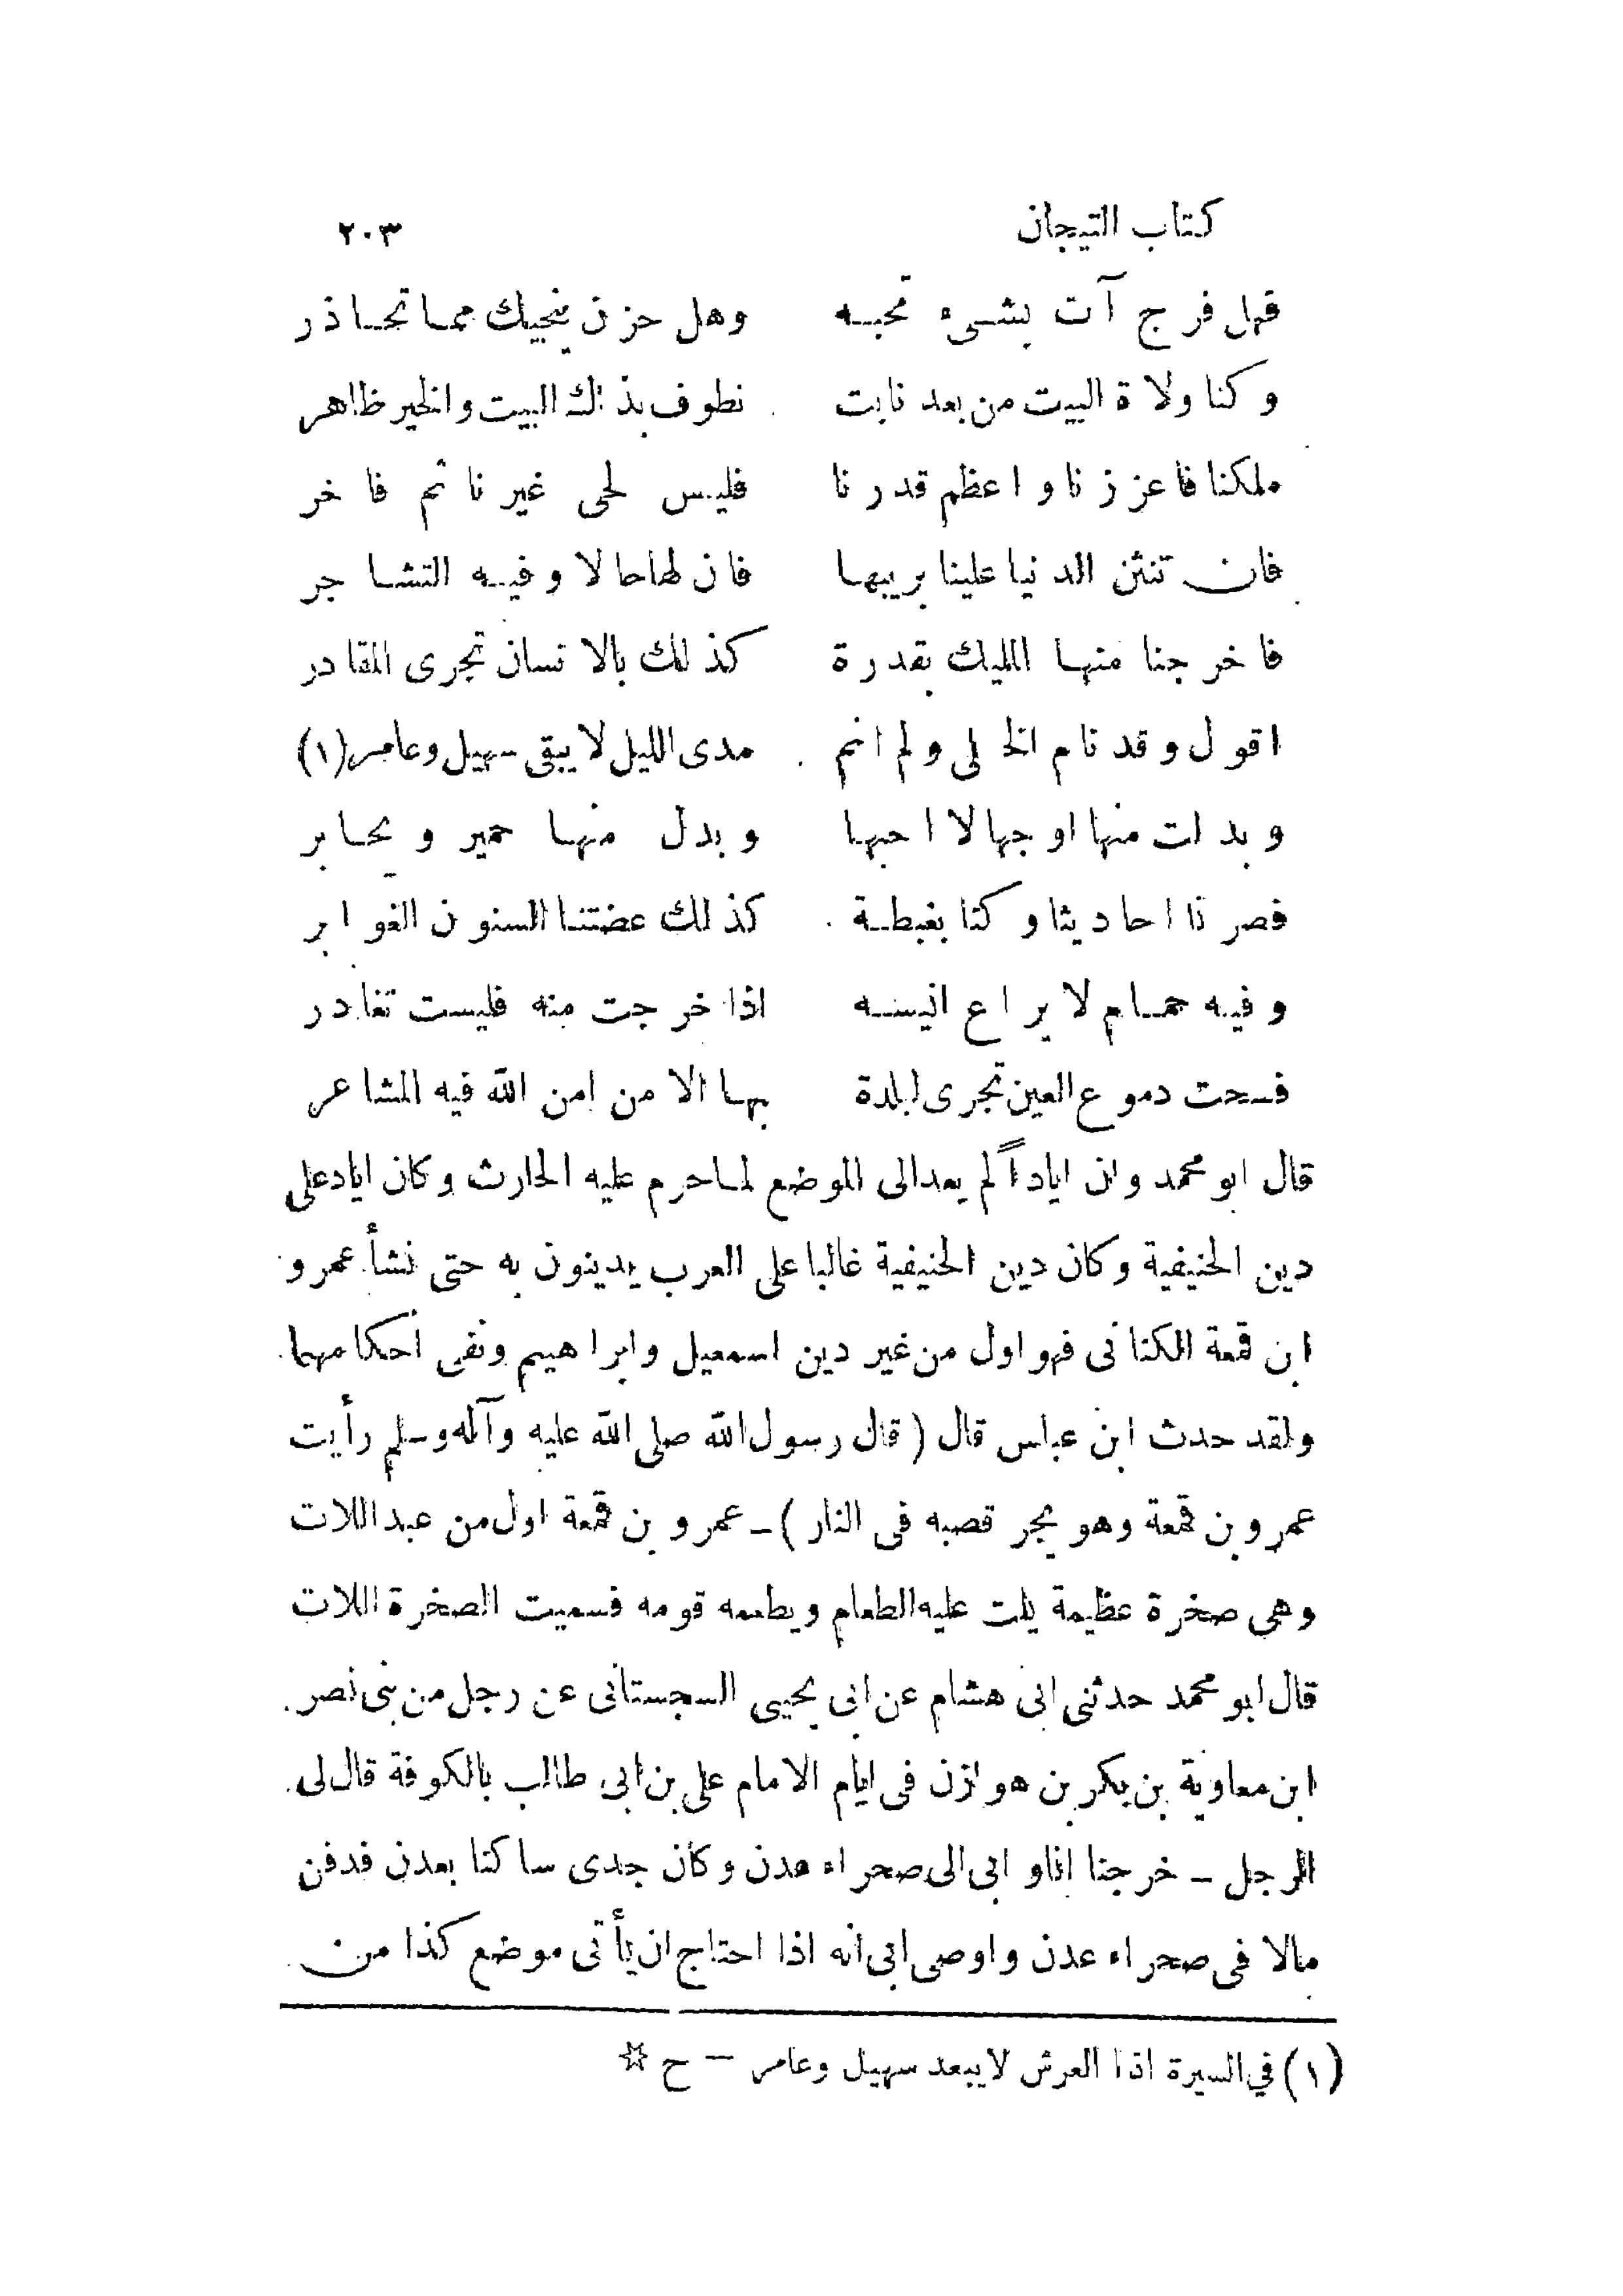 كتاب التيجان ٢٠٣
فهل فرج آت بشىء تحبه وهل حزن ينجيك مما تحاذر
وكنا ولاة البيت من بعد نابت نطوف بذاك البيت والخير ظاهر
ملكنا فاعززنا واعظم قدرنا فليس لحى غيرنا ثم فاخر
فان تنثن الدنيا علينا بريبها فان لها حالا وفيه التشاجر
فاخرجنا منها المليك بقدرة كذلك بالانسان تجرى المقادر
اقول وقد نام الخلى ولم انم مدى الليل لا يبقى سهيل وعامر (١)
وبدلت منها اوجها لا احبها وبدل منها حمير ويحابر
فصرنا احاديثا وكنا بغبطة كذلك عضتنا السنون الغوابر
وفيه حمام لا يراع انيسه اذا خرجت منه فليست تغادر
فسحت دموع العين تجرى لبلدة بها الا من امن الله فيه المشاعر
قال ابو محمد وان اياداً لم يعد الى الموضع لما حرم عليه الحارث وكان اياد على
دين الحنيفية وكان دين الحنيفية غالبا على العرب يدينون به حتى نشأ عمرو
ابن قمعة الكنانى فهو اول من غير دين اسمعيل وابراهيم ونفى احكامهما
ولقد حدث ابن عباس قال ( قال رسول الله صلى الله عليه وآله وسلم رأيت
عمرو بن قمعة وهو يجر قصبه فى النار ) ـ عمرو بن قمعة اول من عبد اللات
وهى صخرة عظيمة يلت عليه الطعام ويطعمه قومه فسميت الصخرة اللات
قال ابو محمد حدثنى ابى هشام عن ابى يحيى السجستانى عن رجل من بنى نصر
ابن معاوية بن بكر بن هوازن فى ايام الامام على بن ابى طالب بالكوفة قال لى
الرجل ـ خرجنا انا و ابى الى صحراء عدن وكان جدى ساكنا بعدن فدفن
مالا فى صحراء عدن واوصى ابى انه اذا احتاج ان يأتى موضع كذا من
(١) في السيرة اذا العرش لا يبعد سهيل وعامر — ح ☆